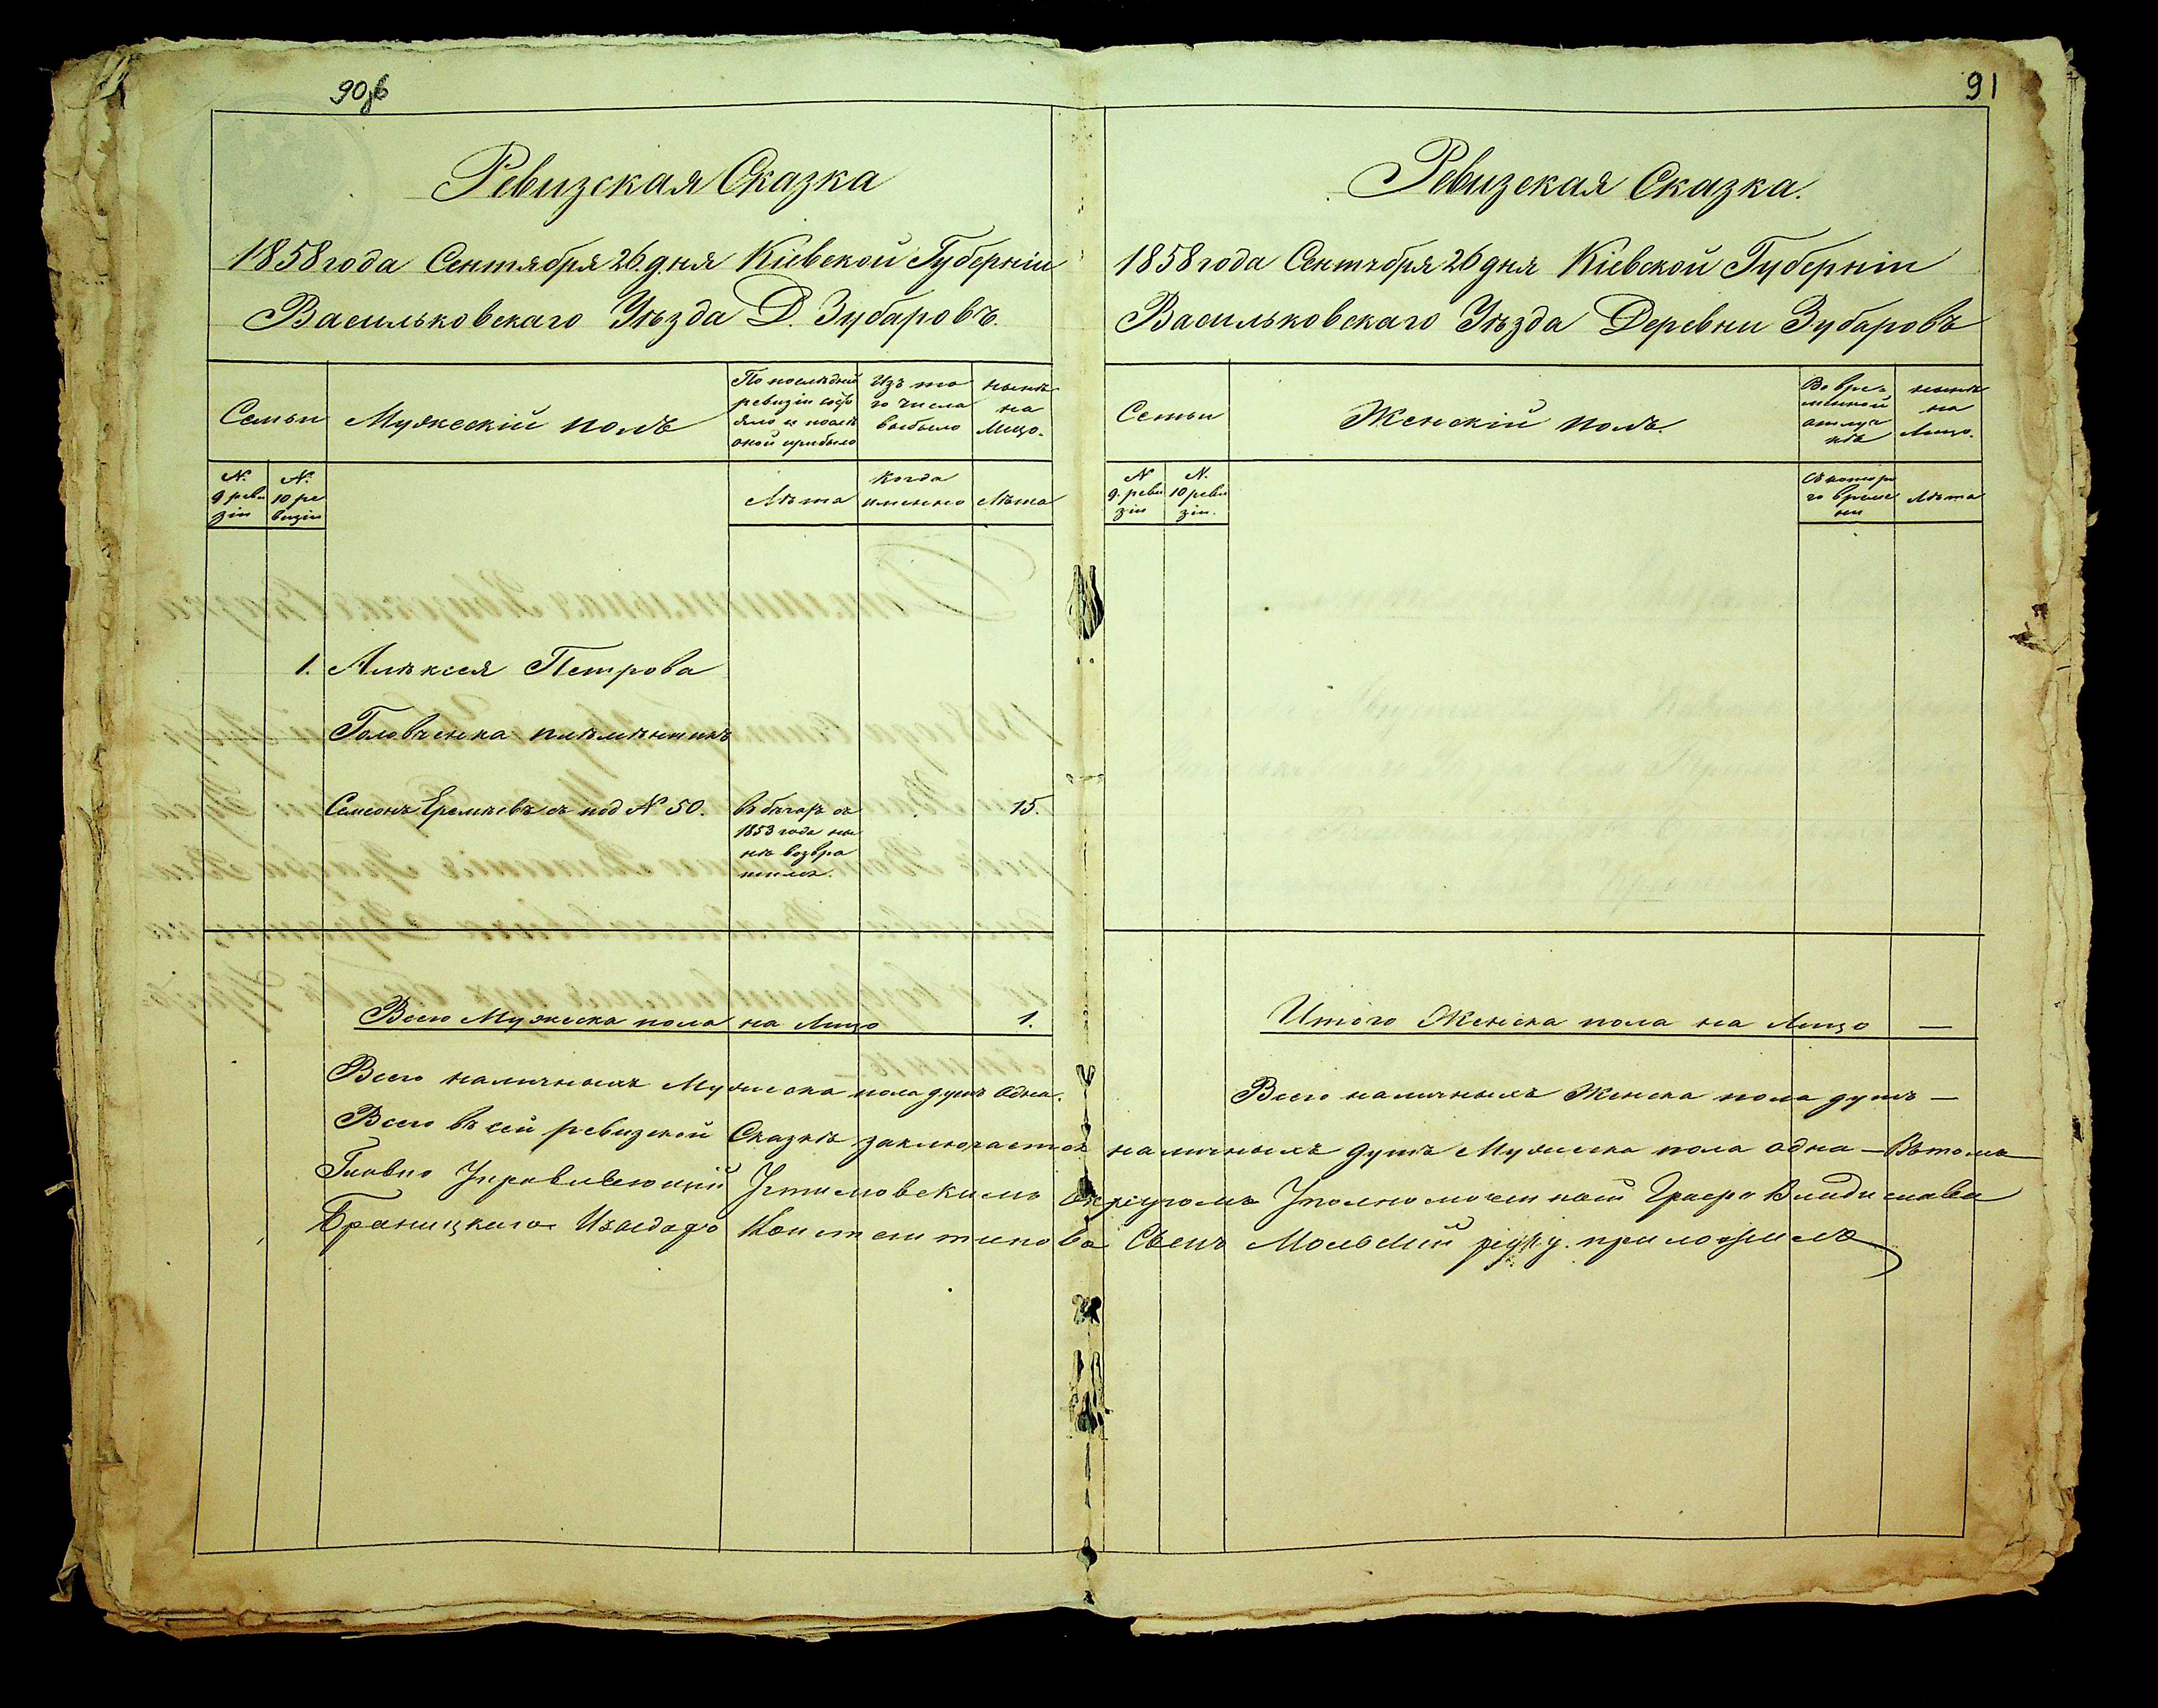 90об
Ревизская Сказка
1858 года Сентября 26. дня Кіевской Губерніи
Васильковскаго Уѣзда Д. Зубаровъ.
Семьи
Мужескій полъ
По послѣдней
ревизіи состо
яло и послѣ
оной прибыло
Изъ то
го числа
выбыло
нынѣ
на
Лицо.
N.
9 реви
зіи
N.
10 ре
визіи
Лѣта
Когда
именно
Лѣта
1.
Алѣксея Петрова
Головченка племѣнникъ
Семонъ Еремѣевъ съ под N 50.
въ бѣгахъ съ
1853 года ны
нѣ возвра
тился.
15.
Всего Мужеска пола на Лицо 1.
Всего наличныхъ Мужеска пола душъ Одна.
91
Ревизская Сказка.
1858 года Сентября 26 дня Кіевской Губерніи
Васильковскаго Уѣзда Деревни Зубаровъ
Семьи
Женскій полъ.
Во вре
менной
отлуч
кѣ
нынѣ
на
Лицо.
N
9. реви
зіи
N.
10 реви
зіи.
Съ котора
го време
ни
Лѣта
Итого Женска пола на Лицо —
Всего наличныхъ Женска пола душъ —
Всего въ сей ревизской Сказкѣ заключается наличныхъ душъ Мужеска пола одна — Въ томъ
Главно Управляющій Устимовскимъ Округомъ Уполномоченный Графа Владислава
Браницкаго Константинова Сынъ руку приложилъ